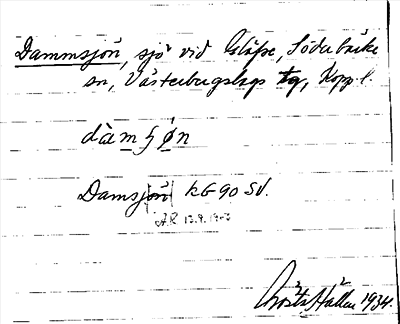 Dammsjön, sjö vid Gläfse, Söderbärke
sn, Västerbergslags tg, Kopp. l.
dàmʃǿn
Damsjön kG 90 SV.
AR
Gösta Hallin 1934.